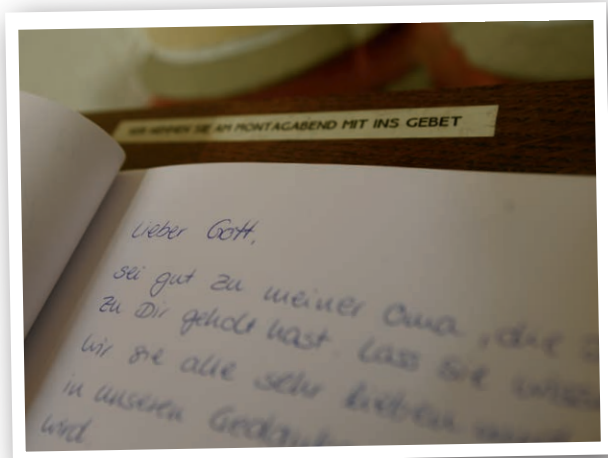 WIR NEHMEN SIE AM MONTAGABEND MIT INS GEBET
Lieber Gott,
sei gut zu meiner Oma, die
zu Dir geholt hast. Lass sie wissen
wir sie alle sehr lieben
in unseren
wird